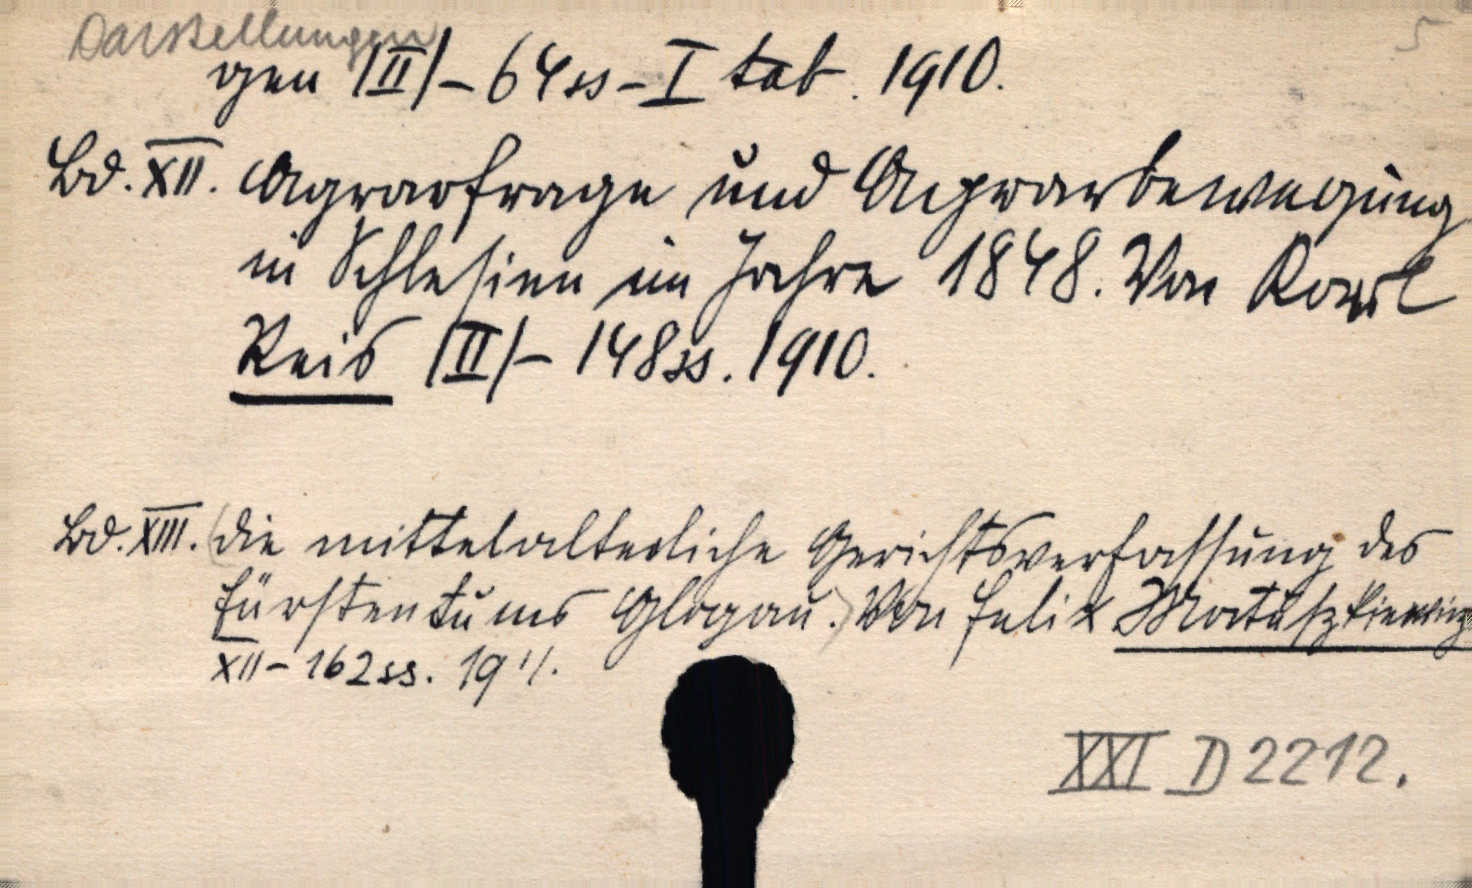 Darstellungen
5
gen (II) – 64 ss – I tab. 1910.
Bd. XII. Agrarfrage und Agrarbewegung
in Schlesien im Jahre 1848. Von Karl
Reis (II) – 148 ss. 1910.
Bd. XIII. (Die mittelalterliche Gerichtsverfassung des
Fürstentums Glogau.) Von Felix Matuszkiewicz
XII – 162 ss. 1911.
XXI D 2212.